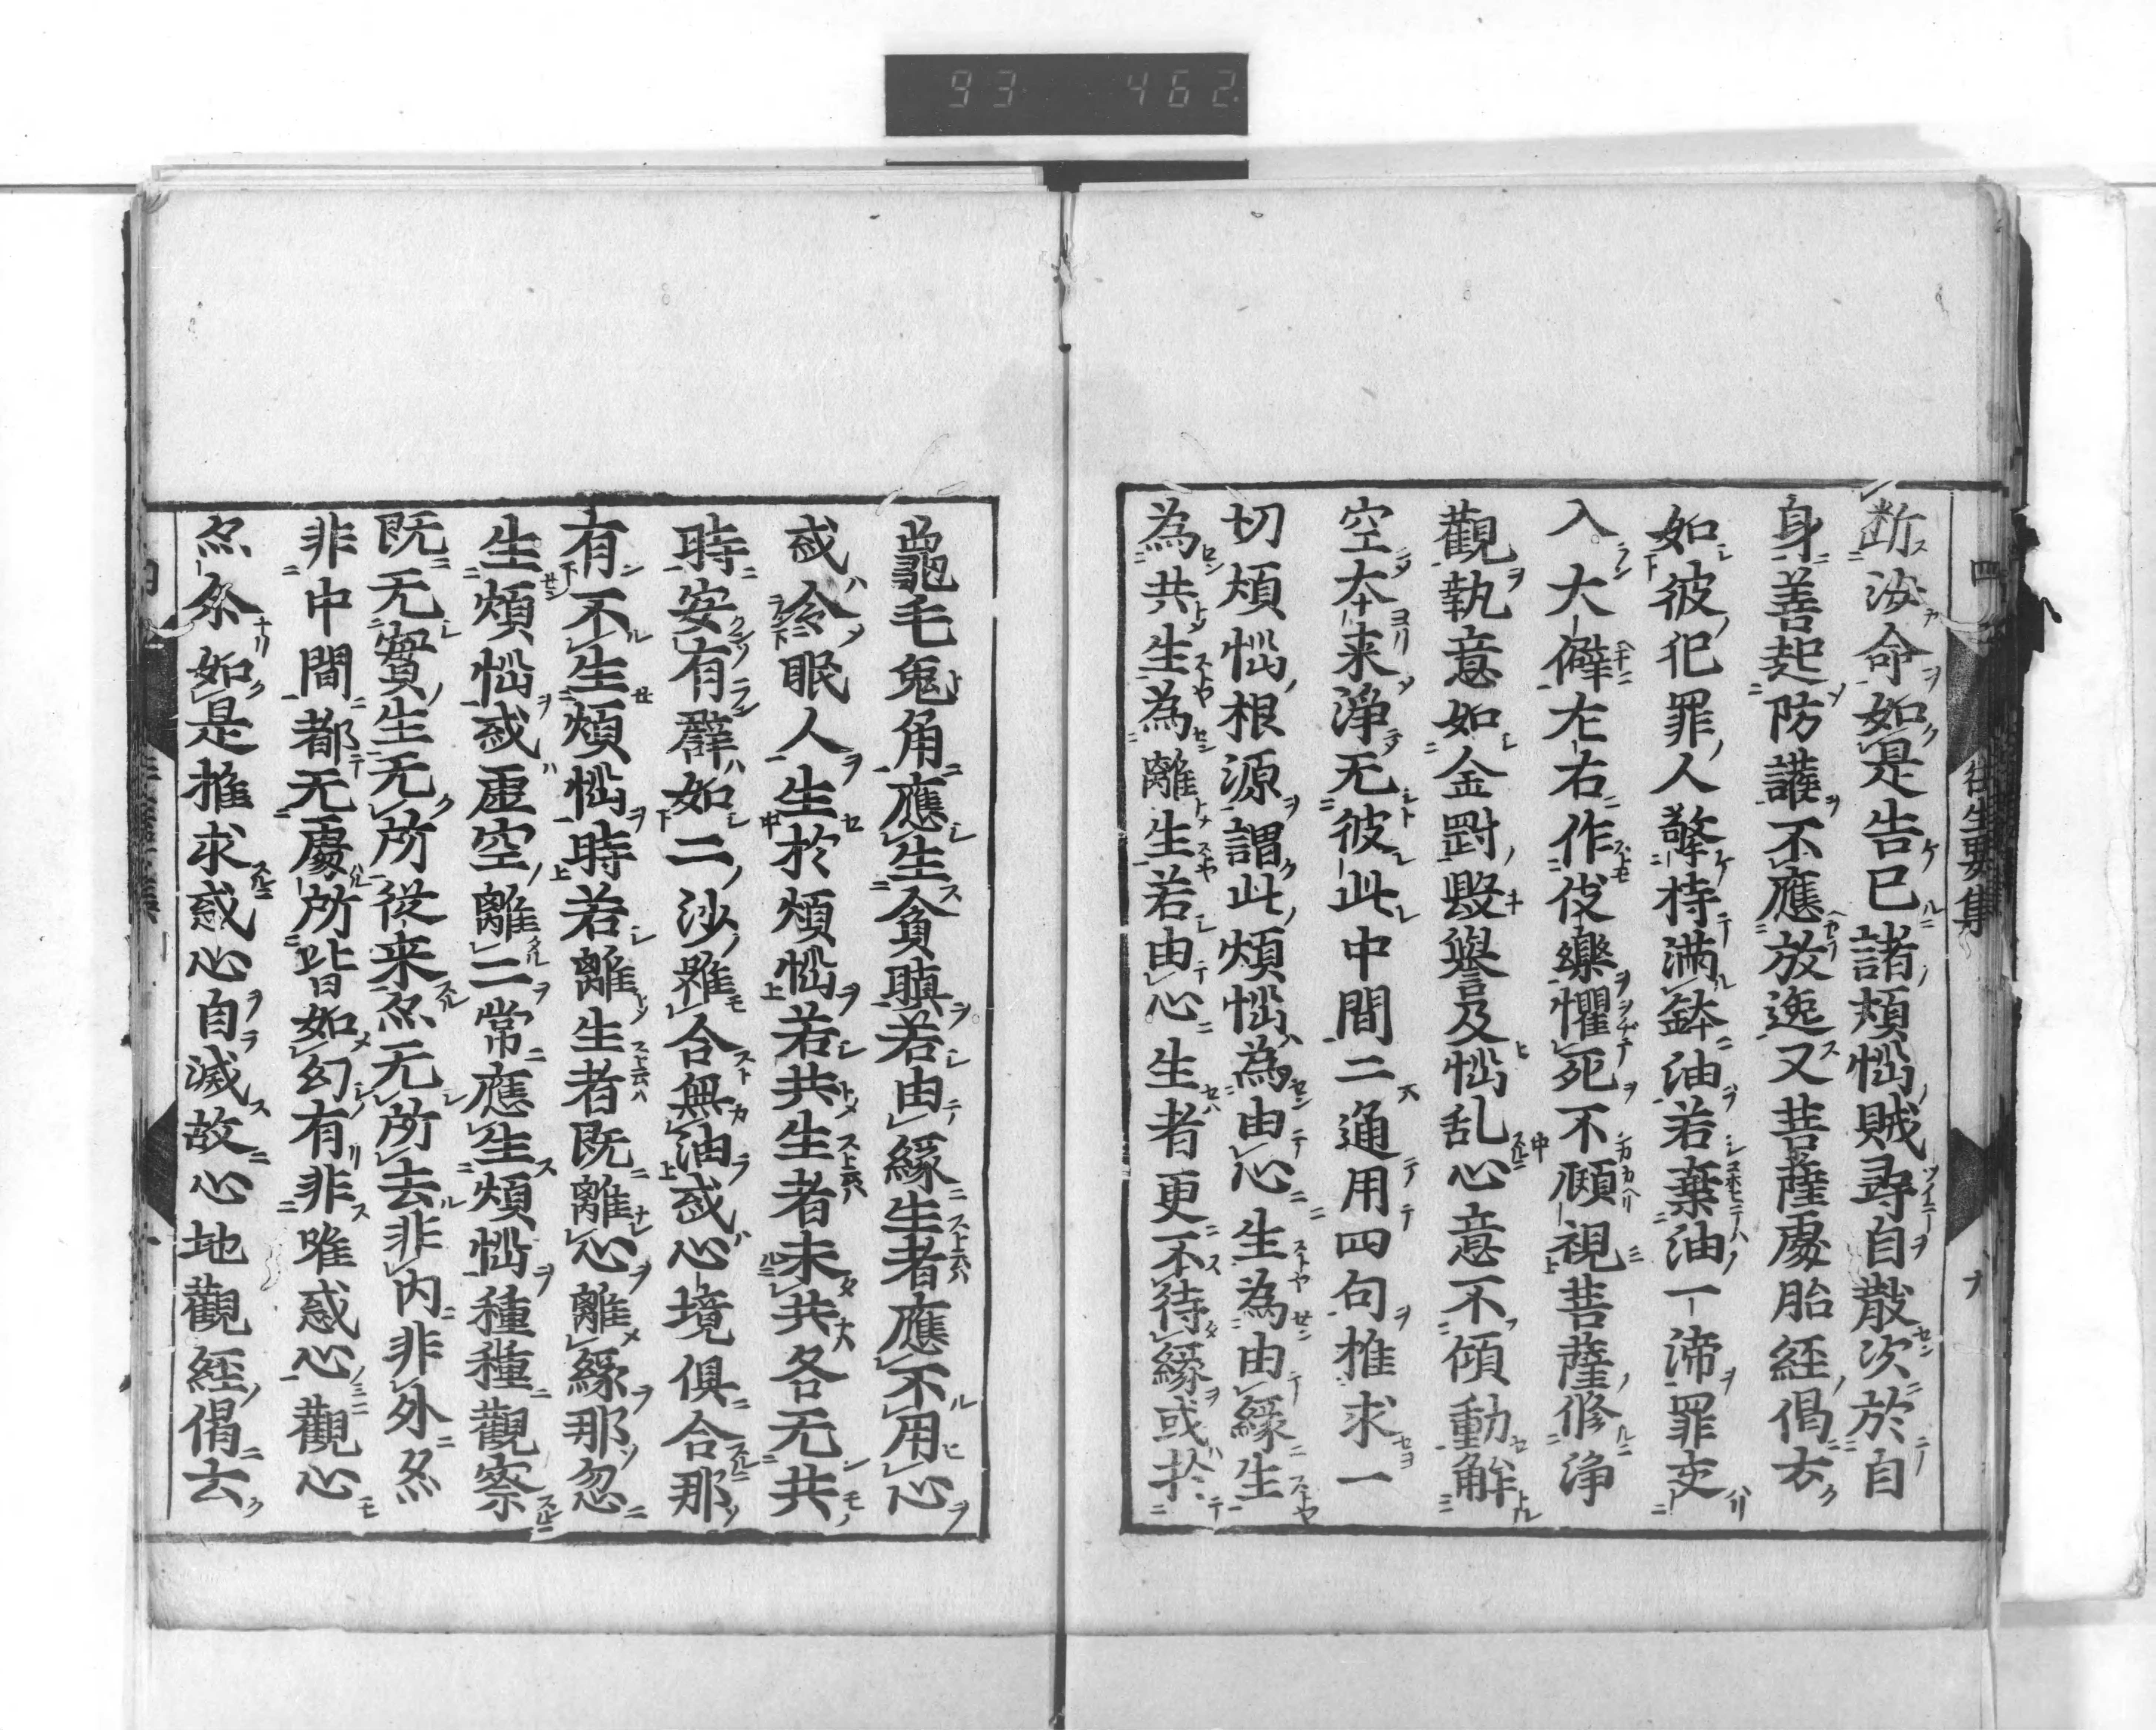 93 462
往生要集
断汝命如是告已諸煩惱賊尋自散次於自
身善起防護不應放逸又菩薩處胎經偈云
如彼犯罪人擎持滿鉢油若棄油一渧罪交
入大僻左右作伎樂懼死不顧視菩薩修淨
觀執意如金剛毀譽及惱乱心意不傾動解
空本来淨无彼此中間二通用四句推求一
切煩惱根源謂此煩惱為由心生為由緣生
為共生為離生若由心生者更不待緣或於
龜毛兔角應生貪瞋若由緣生者應不用心
或令眠人生於煩惱若共生者未共各无共
時安有群如二沙雖合無油或心境俱合那
有不生煩惱時若離生者既離心離緣那忽
生煩惱或虛空離二常應生煩惱種種觀察
既无實生无所從来亦无所去非内非外亦
非中間都无處所皆如幻有非唯惑心觀心
亦尒如是推求惑心自滅故心地觀經偈云